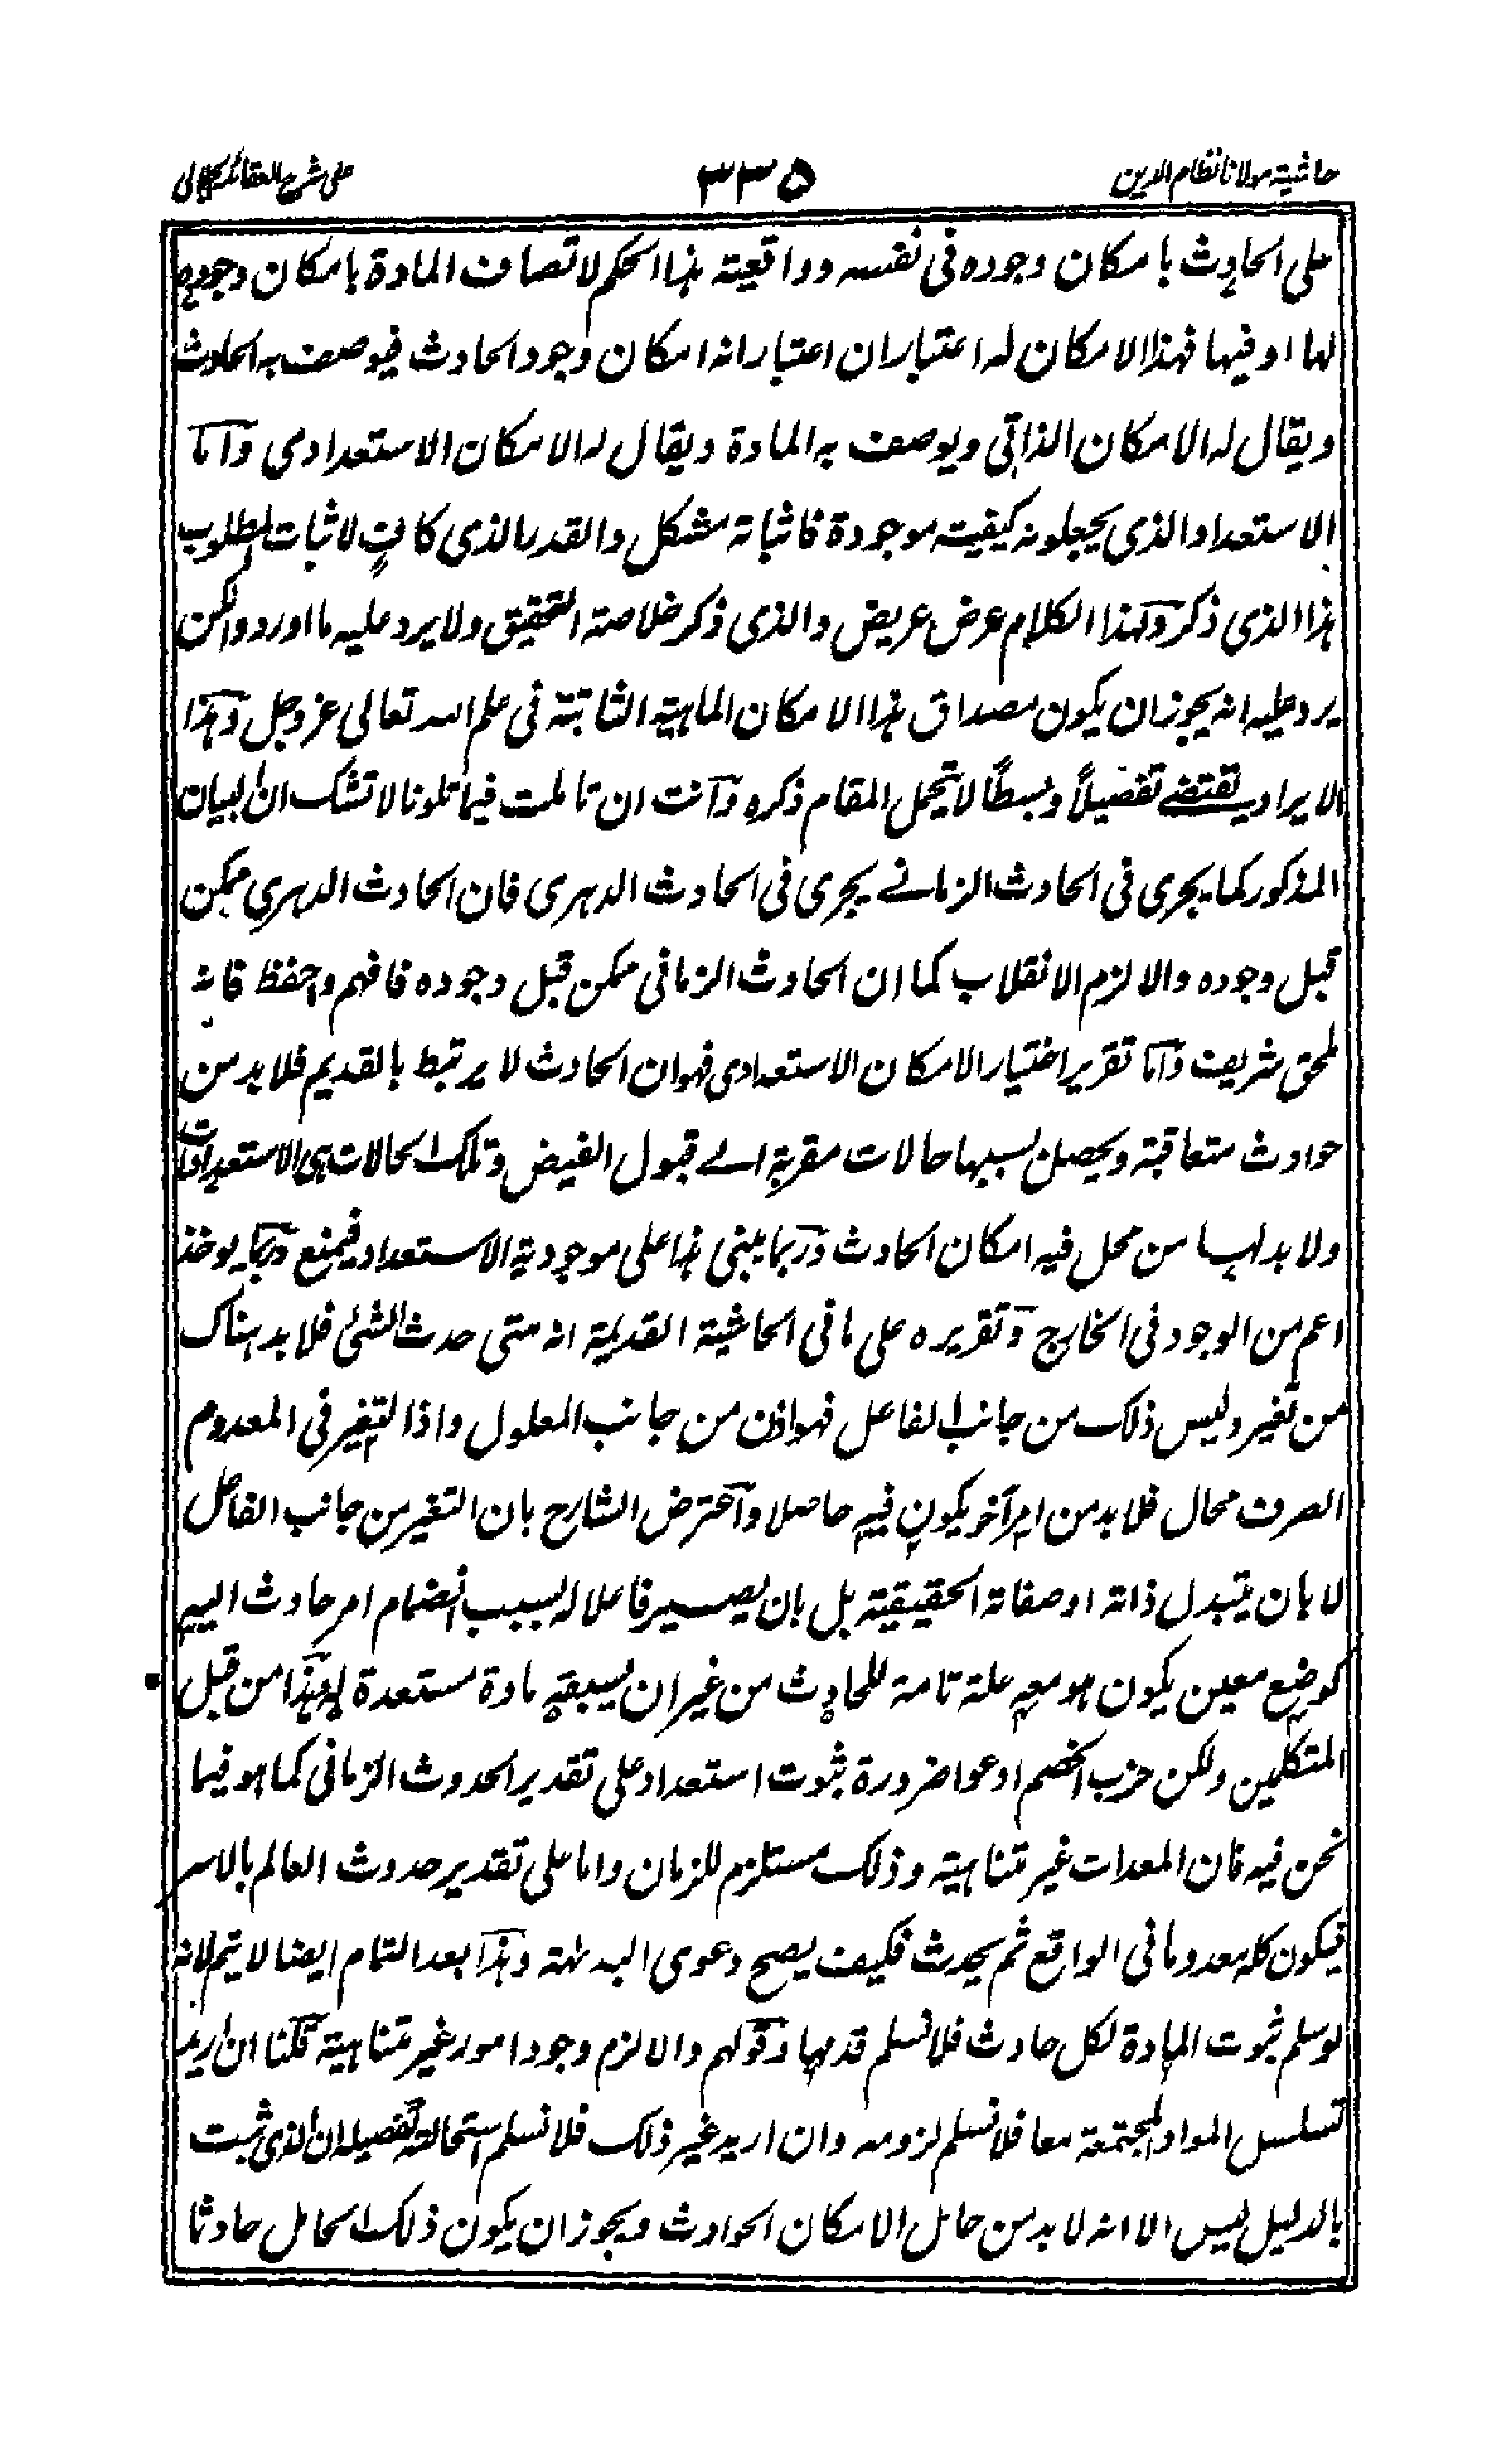 حاشية مولانا نظام الدين
٣٣٥
على شرح العقائد للجلالی
على الحادث بامكان وجوده فى نفسه وواقعية هذا الحكم لاتصاف المادة بامكان وجوده
لها او فيها فهذا الامكان له اعتباران اعتبار انه امكان وجود الحادث فيوصف به الحادث
ويقال له الامكان الذاتى ويوصف به المادة ويقال له الامكان الاستعدادى وأما
الاستعداد الذى يجعلونه كيفية موجودة فاثباته مشكل والقدر الذى كافٍ لاثبات المطلوب
هذا الذى ذكر ولهذا الكلام عرض عريض والذى ذكر خلاصة التحقيق ولا يرد عليه ما اوردوا لكن
يرد عليه انه يجوز ان يكون مصداق هذا الامكان الماهية الثابتة فى علم الله تعالى عز وجل وهذا
الايراد يقتضے تفصيلاً وبسطاً لا يتحمل المقام ذكره وأنت ان تاملت فيما تلونا لا تشك ان البيان
المذكور كما يجرى فى الحادث الزمانے يجرى فى الحادث الدهرى فان الحادث الدهرى ممكن
قبل وجوده والا لزم الانقلاب كما ان الحادث الزمانى ممكن قبل وجوده فافهم واحفظ فانه
لمحق شريف وأما تقرير اختيار الامكان الاستعدادى فهو ان الحادث لا يرتبط بالقديم فلا بد من
حوادث متعاقبة ويحصل بسببها حالات مقربة الے قبول الفيض وتلك الحالات هى الاستعدادات
ولا بد لها من محل فيه امكان الحادث وربما يبنى هذا على موجودية الاستعداد فيمنع وربما يوخذ
اعم من الوجود فى الخارج وتقريره على ما فى الحاشية القديمة انه متى حدث الشئ فلا بد هناك
من تغير وليس ذلك من جانب الفاعل فهو اذن من جانب المعلول واذا التغير فى المعدوم
الصرف محال فلا بد من امر آخر يكون فيه حاصلا وأعترض الشارح بان التغير من جانب الفاعل
لا بان يتبدل ذاته او صفاته الحقيقية بل بان يصير فاعلا له بسبب انضمام امر حادث اليه
كوضع معين يكون هو معه علة تامة للحادث من غير ان يسبقه مادة مستعدة له وهذا من قبل
المتكلمين ولكن حزب الخصم ادعوا ضرورة ثبوت استعداد على تقدير الحدوث الزمانى كما هو فيما
نحن فيه فان المعدات غير متناهية وذلك مستلزم للزمان واما على تقدير حدوث العالم بالاسر
فيكون كله معدوما فى الواقع ثم يحدث فكيف يصح دعوى البداهة وهذا بعد التمام ايضا لا يتم لانه
لو سلم ثبوت المادة لكل حادث فلا نسلم قدمها وقولهم والا لزم وجود امور غير متناهية قلنا ان اريد
تسلسل المواد المجتمعة معا فلا نسلم لزومه وان اريد غير ذلك فلا نسلم استحالته تفصيله ان الذى ثبت
بالدليل ليس الا انه لا بد من حامل الامكان الحوادث ويجوز ان يكون ذلك الحامل حادثا